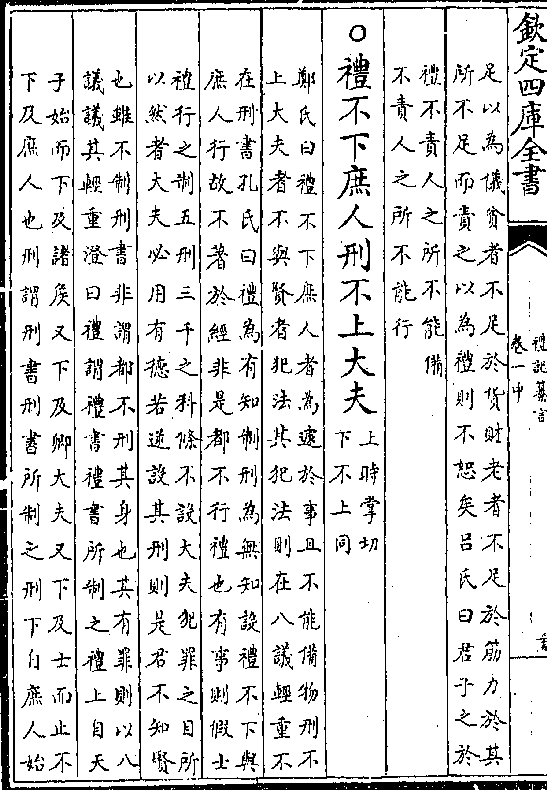 欽定四庫全書
禮記纂言
卷一中
足以為儀貧者不足於貨財老者不足於筋力於其
所不足而責之以為禮則不恕矣吕氏曰君子之於
禮不責人之所不能備
不責人之所不能行
○禮不下庶人刑不上大夫
上時掌切
下不上同
鄭氏曰禮不下庶人者為遽於事且不能備物刑不
上大夫者不與賢者犯法其犯法則在八議輕重不
在刑書孔氏曰禮為有知制刑為無知設禮不下與
庶人行故不著於經非是都不行禮也有事則假士
禮行之制五刑三千之科條不設大夫犯罪之目所
以然者大夫必用有德若逆設其刑則是君不知賢
也雖不制刑書非謂都不刑其身也其有罪則以八
議議其輕重澄曰禮謂禮書禮書所制之禮上自天
子始而下及諸侯又下及卿大夫又下及士而止不
下及庶人也刑謂刑書刑書所制之刑下自庶人始